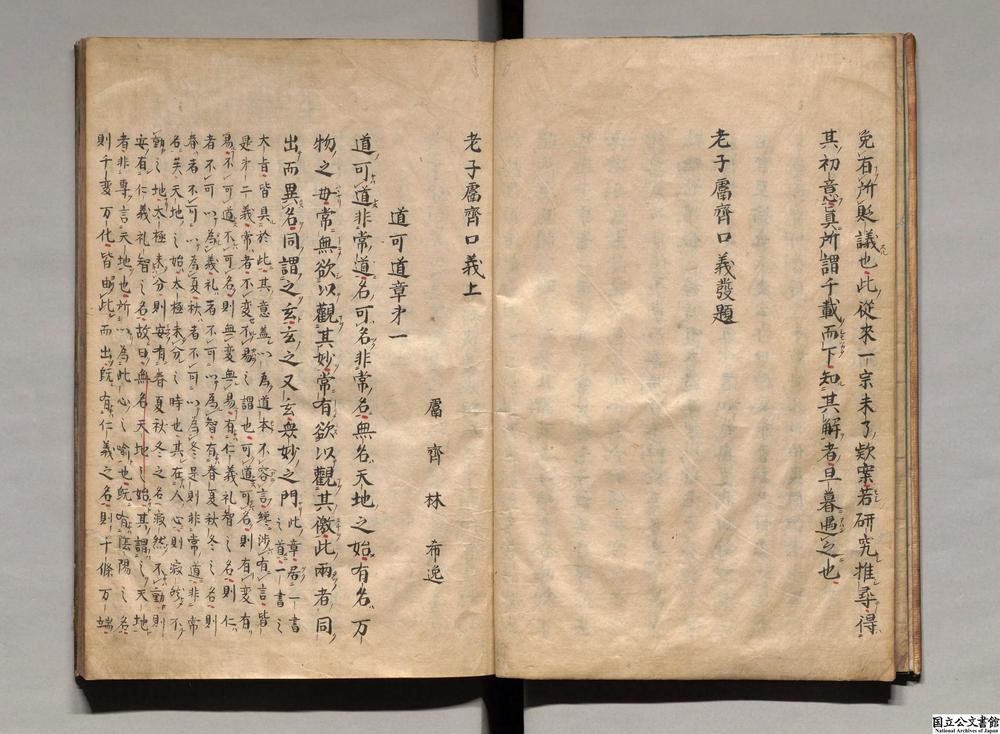 免有所貶議也此從來一宗未了欵案若研究推尋得
其初意真所謂千載而下知其解者旦暮遇之也
老子鬳齊口義發題
老子鬳齊口義上
鬳齊 林 希逸
道可道章才一
道可道非常道名可名非常名無名天地之始有名万
物之毋常無欲以觀其妙常有欲以觀其徼此兩者同
出而異名同謂之玄玄之又玄衆妙之門此章居一書
之道一書之
大㫖皆具於此其意盖以為道本不容言纔涉有言皆
是才二義常者不變不易之謂也可道可名則有變有
易不可道不可名則無變無易有仁義礼智之名則仁
者不可以為義礼者不可以為智有春夏秋冬之名則
春者不可以為夏秋者不可以為冬是則非常道非常
名矣天地之始太極未分之時也其在人心則寂然不
動之地太極未分則安有春夏秋冬之名寂然不動則
安有仁義礼智之名故曰無名天地之始其謂之天地
者非專言天地也所以為此心之喻也既有陰陽之名
則千变万化皆由此而出既有仁義之名則千條万端
国立公文書館
National Archives of Japan